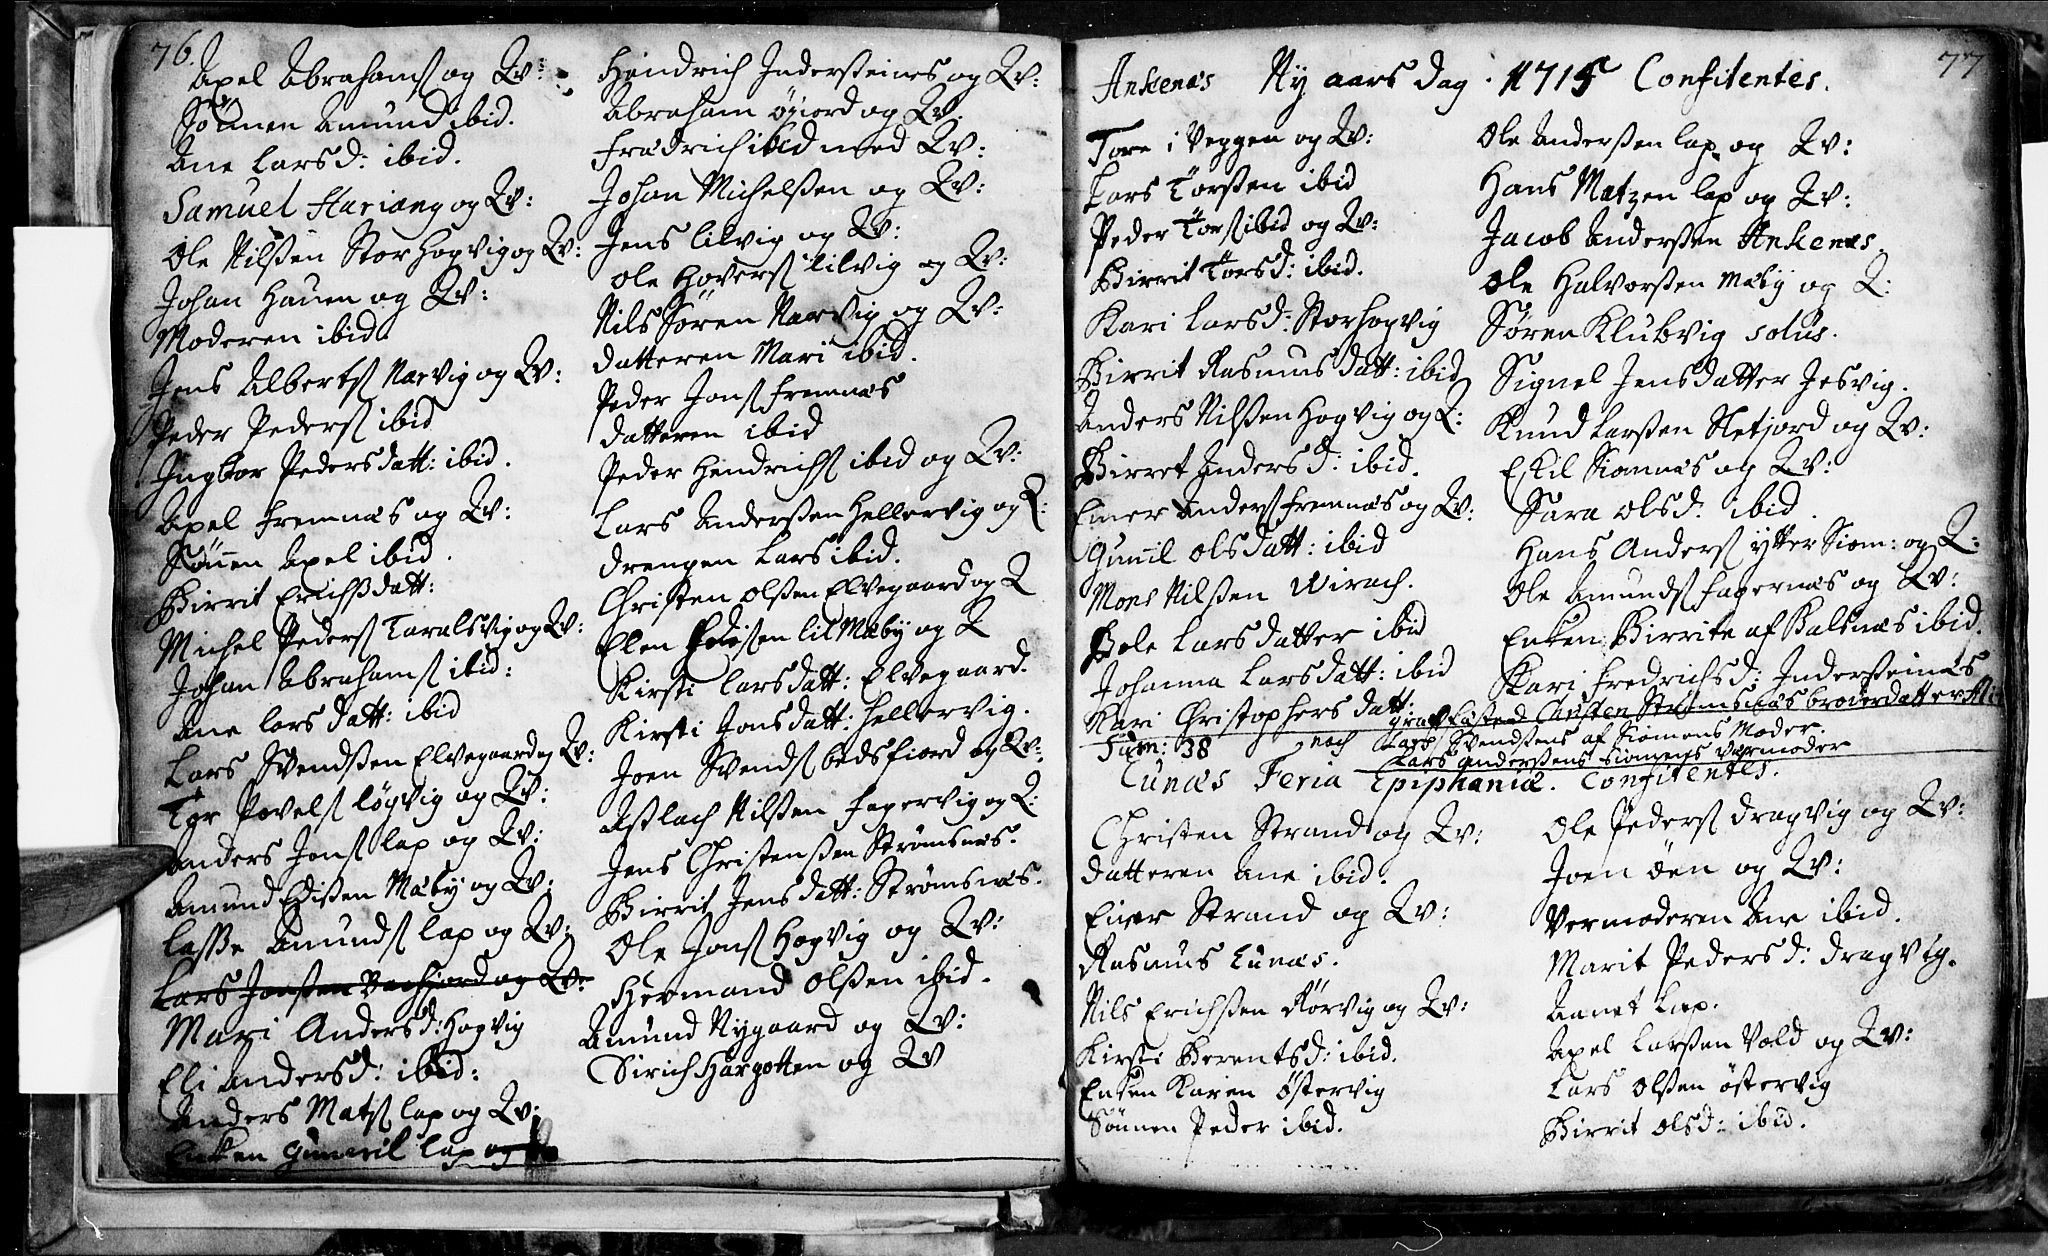 76.
Axel Abrahams og Qv:
Sönnen Amund ibid.
Ane Larsd: ibid.
Samuel Hariang og Qv:
Ole Nilßen Storhogvig og Qv:
Johan Hauen og Qv:
Moderen ibid.
Jens Alberts Narvig og Qv:
Peder Peders ibid
Ingbor Pedersdatt: ibid.
Axel Fremnæs og Qv:
Sönnen Axel ibid.
Birrit Erichßdatt:
Michel Peders Taralsvig og Qv:
Johan Abrahams ibid:
Ane Larsdatt: ibid
Lars Svendßen Elvegaard og Qv:
Tor Povels Løgvig og Qv:
Anders Jons lap og Qv:
Amund Edißen Mæby og Qv:
Lasse Amunds lap og Qv:
Lars Jonsten Bachfiord og Qv:
Mari Andersd: Hogvig
Eli Andersd: ibid:
Anders Mats lap og Qv:
Enken Gunnil lap og
Hendrich Indersteines og Qv:
Abraham Øyiord og Qv.
Fredrich ibid med Qv:
Johan Michelßen og Qv:
Jens Lilvig og Qv:
Ole Hovers Lilvig og Qv:
Nils Sören Narvig og Qv:
datteren Mari ibid.
Peder Jons Fremnæs
datteren ibid
Peder Hendrichs ibid og Qv:
Lars Anderßen Hellervig og Q:
drengen Lars ibid.
Christen Olßen Elvegaard og Q
Elen lil Mæby og Q
Kirsti Larsdatt: Elvegaard.
Kirsti Jonsdatt: Hellervig.
Joen Svends bedsfiord og Qv:
Aßlach Nilßen Fagervig og Q:
Jens Christenßen Strømsnæs.
Birrit Jensdatt: Strømsnæs.
Ole Jons Hogvig og Qv:
Hermand Olßen ibid.
Amund Nygaard og Qv:
Sirich Hargotten og Qv
77
Ankenæs Ny aars dag. 1715 Confitentes.
Tore i Veggen og Qv:
Lars Törßen ibid
Peder Törs ibid og Qv:
Birrit Törsd: ibid.
Kari Larsd: Storhogvig
Birrit Rasmusdatt: ibid
Anders Nilßen Hogvig og Q:
Birret Andersd: ibid.
Einer Anders Fremnæs og Qv:
Gunnil Olsdatt: ibid
Mons Nilßen Wirach.
Bole Larsdatter ibid
Johanna Larsdatt: ibid
Kari Christophersdatt:
Sum: 38
Ole Anderßen lap og Qv:
Hans Matzen lap og Qv:
Jacob Anderßen Ankenæs.
Ole Halvorßen Mæby og Q:
Søren Klubvig solus.
Signel Jensdatter Jesvig.
Knud Larßen Sletjord og Qv:
Eskil Siomnæs og Qv:
Sara Olsd: ibid.
Hans Anders ytter Siom: og Q:
Ole Amunds Fagernæs og Qv:
Enken Birrite af Balsnæs ibid.
Kari Fredrichsd: Indersteinæs
Christen Strømsnæs broderdatter
noch Lars Svendsens af Siomnæs Moder.
Lars Anderßens Siomnæs Vermoder
Lunæs Feria Epiphaniæ. Confitentes.
Christen Strand og Qv:
datteren Ane ibid.
Einer Strand og Qv:
Rasmus Lunæs.
Nils Erichßen Rörvig og Qv:
Kirsti Berentsd: ibid.
Enken Karen Östervig
Sönnen Peder ibid.
Ole Peders Dragvig og Qv:
Joen öen og Qv:
Vermoderen Ane ibid.
Marit Pedersd: Dragvig.
Aanet Lap.
Axel Larßen Vold og Qv:
Lars Olßen Östervig
Birrit Olsd: ibid.